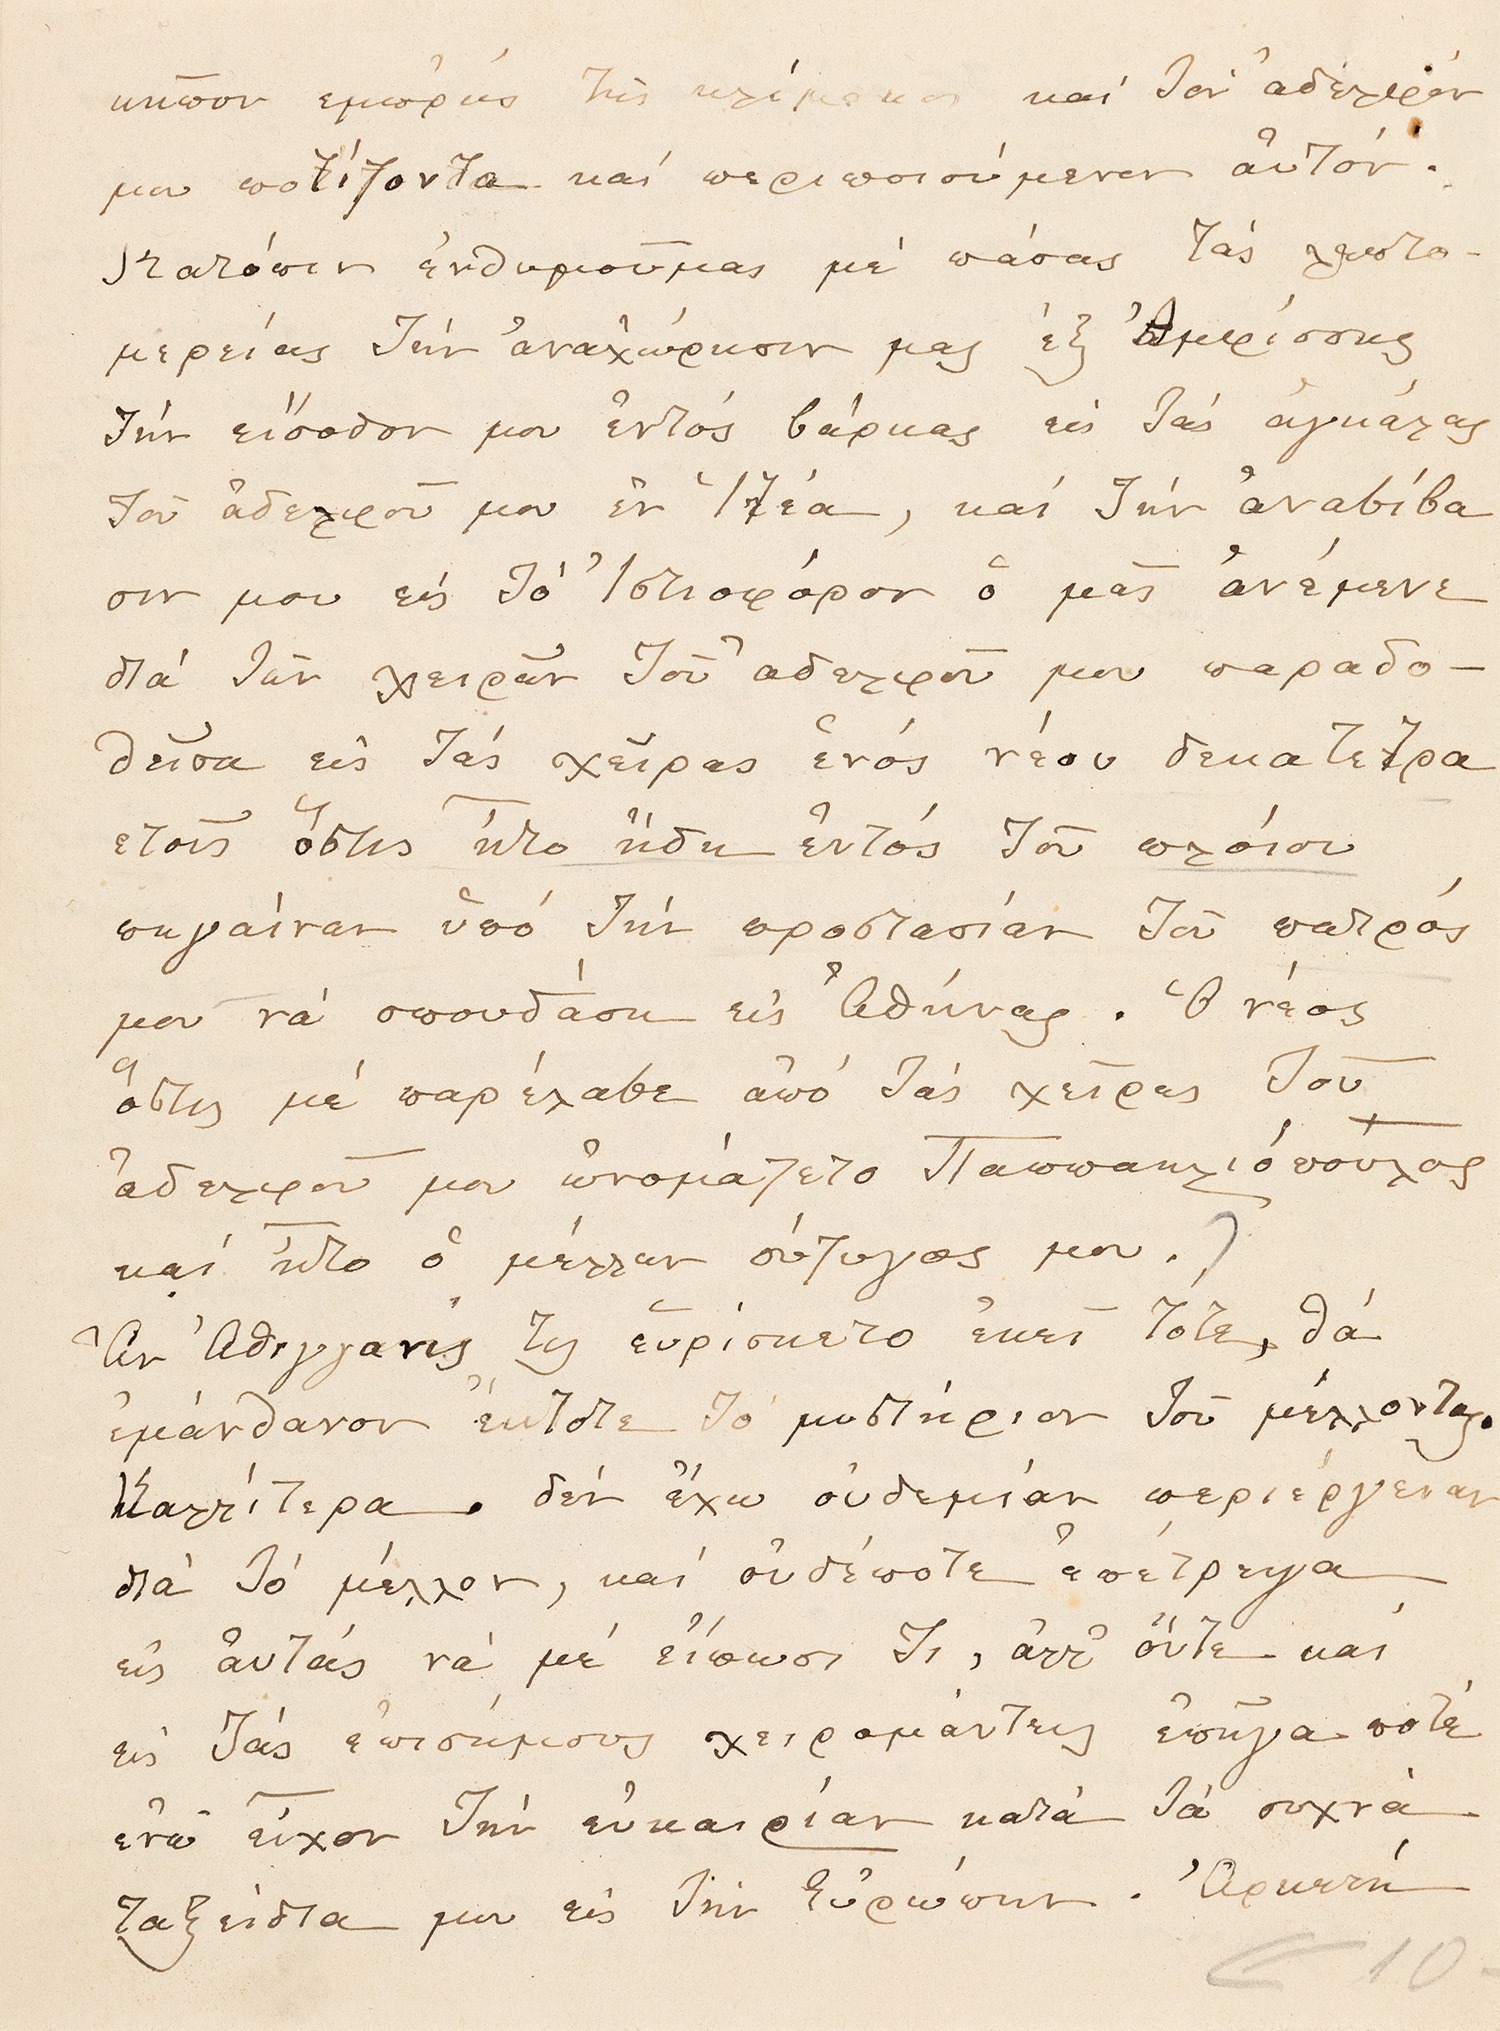 κῆπον εμπρός τῆς κλίμακος καί τόν ἀδελφόν
μου ποτίζοντα καί περιποιούμενον ἀυτόν.
Κατόπιν ἐνθυμοῦμαι μέ πάσας τάς λεπτο-
μερείας τήν ἀναχώρησιν μας ἐξ Ἀμφίσσης
τήν εἴσοδον μου ἐντός βάρκας εἰς τάς ἀγκάλας
τοῦ ἀδελφοῦ μου ἐν Ἰτέα, καί τήν ἀναβίβα
σιν μου εἰς τό Ἰστιοφόρον ὅ μᾶς ἀνέμενε
διά τῶν χειρῶν τοῦ ἀδελφοῦ μου παραδο-
θεῖσα εἰς τάς χεῖρας ἑνός νέου δεκατετρα
ετοῦς ὅστις ἦτο ἤδη ἐντός τοῦ πλόιου
πηγαίνων ὑπό τήν προστασίαν τοῦ πατρός
μου νά σπουδάση εἰς Ἀθήνας. Ὁ νέος
ὅστις μέ παρέλαβε ἀπό τάς χεῖρας τοῦ
ἀδελφοῦ μου ὠνομάζετο Παππακηλιόπουλος
καί ἦτο ὁ μέλλων σύζυγος μου.
Ἄν Ἀθιγγανίς τις εὑρίσκετο ἐκεῖ τότε, θά
ἐμάνθανον ἔκτοτε τό μυστήριον τοῦ μέλλοντος.
Καλλίτερα. δέν ἔχω οὐδεμίαν περιέργειαν
διά τό μέλλον, καί οὐδέποτε ἐπέτρεψα
εἰς ἀυτάς νά μέ εἴπωσι τι, ἀλλ' οὔτε καί
εἰς τάς ἐπισήμους χειρομάντεις ἐπῆγα ποτέ
ἐνῶ εἶχον τήν εὐκαιρίαν κατά τά συχνά
ταξείδια μου εἰς τήν Εὐρώπην. Ἀρκετή
10-